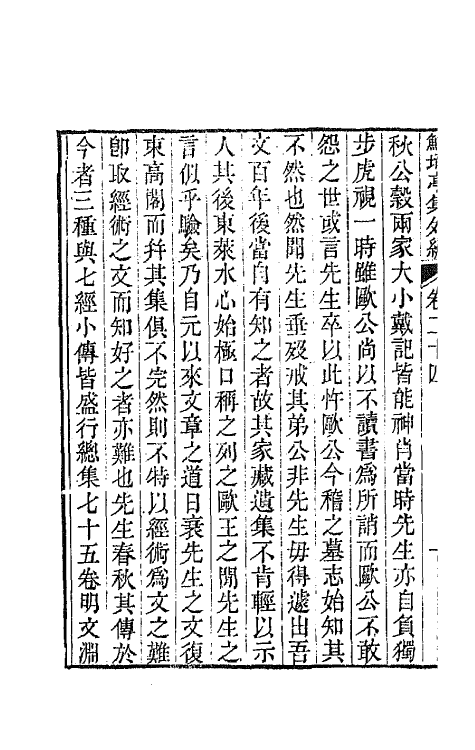 鮚埼亭集外編 卷二十四 一
秋公穀兩家大小戴記皆能神肖當時先生亦自負獨
步虎視一時雖歐公尚以不讀書爲所誚而歐公不敢
怨之世或言先生卒以此忤歐公今稽之墓志始知其
不然也然聞先生垂歿戒其弟公非先生毋得遽出吾
文百年後當自有知之者故其家藏遺集不肯輕以示
人其後東萊水心始極口稱之列之歐王之閒先生之
言似乎驗矣乃自元以來文章之道日衰先生之文復
束高閣而幷其集俱不完然則不特以經術爲文之難
卽取經術之文而知好之者亦難也先生春秋其傳於
今者三種與七經小傳皆盛行總集七十五卷明文淵